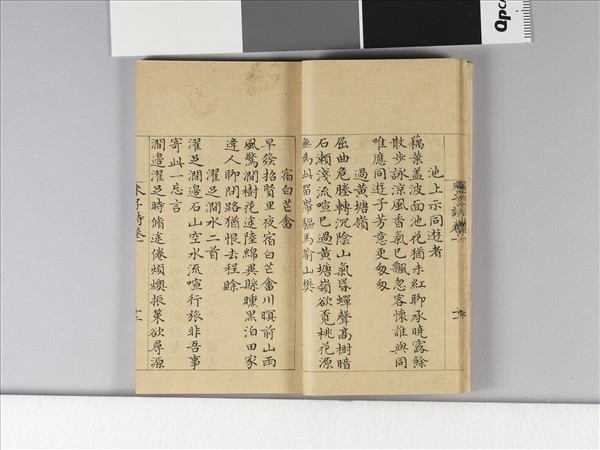 池上示同遊者
藕葉盖波面池花猶未紅聊承曉露餘
散步詠涼風香氣已飄忽客懷誰與同
唯應同遊子芳意更匆匆
過黄塘嶺
屈曲危塍轉沉陰山氣昏蟬聲髙樹暗
石瀨淺流喧已過黄塘嶺欲覓桃花源
無為此留滯驅馬喻山樊
宿白芒畬
早發招賢里夜宿白芒畬川暝前山雨
風驚澗樹花途陸綿異縣曛黒泊田家
逢人聊問路猶恨去程賒
濯足澗水二首
濯足澗邊石山空水流喧行旅非吾事
寄此一忘言
澗邊濯足時脩途倦煩燠振策欲尋源
朱子詩卷一
十一
QpCA